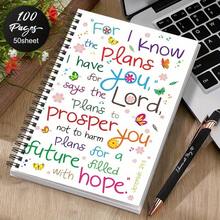 100
Pages
50sheet
For I know
the Plans
I have
for you,
says the Lord,
Plans to
Prosper you
not to harm
Plans for a
future filled
with hope.